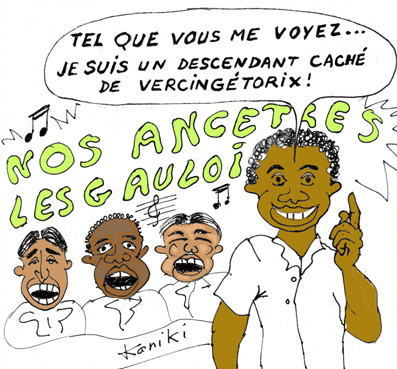 TEL QUE VOUS ME VOYEZ...
JE SUIS UN DESCENDANT CACHÉ
DE VERCINGÉTORIX!
NOS ANCETRES
LES GAULOI
Kaniki